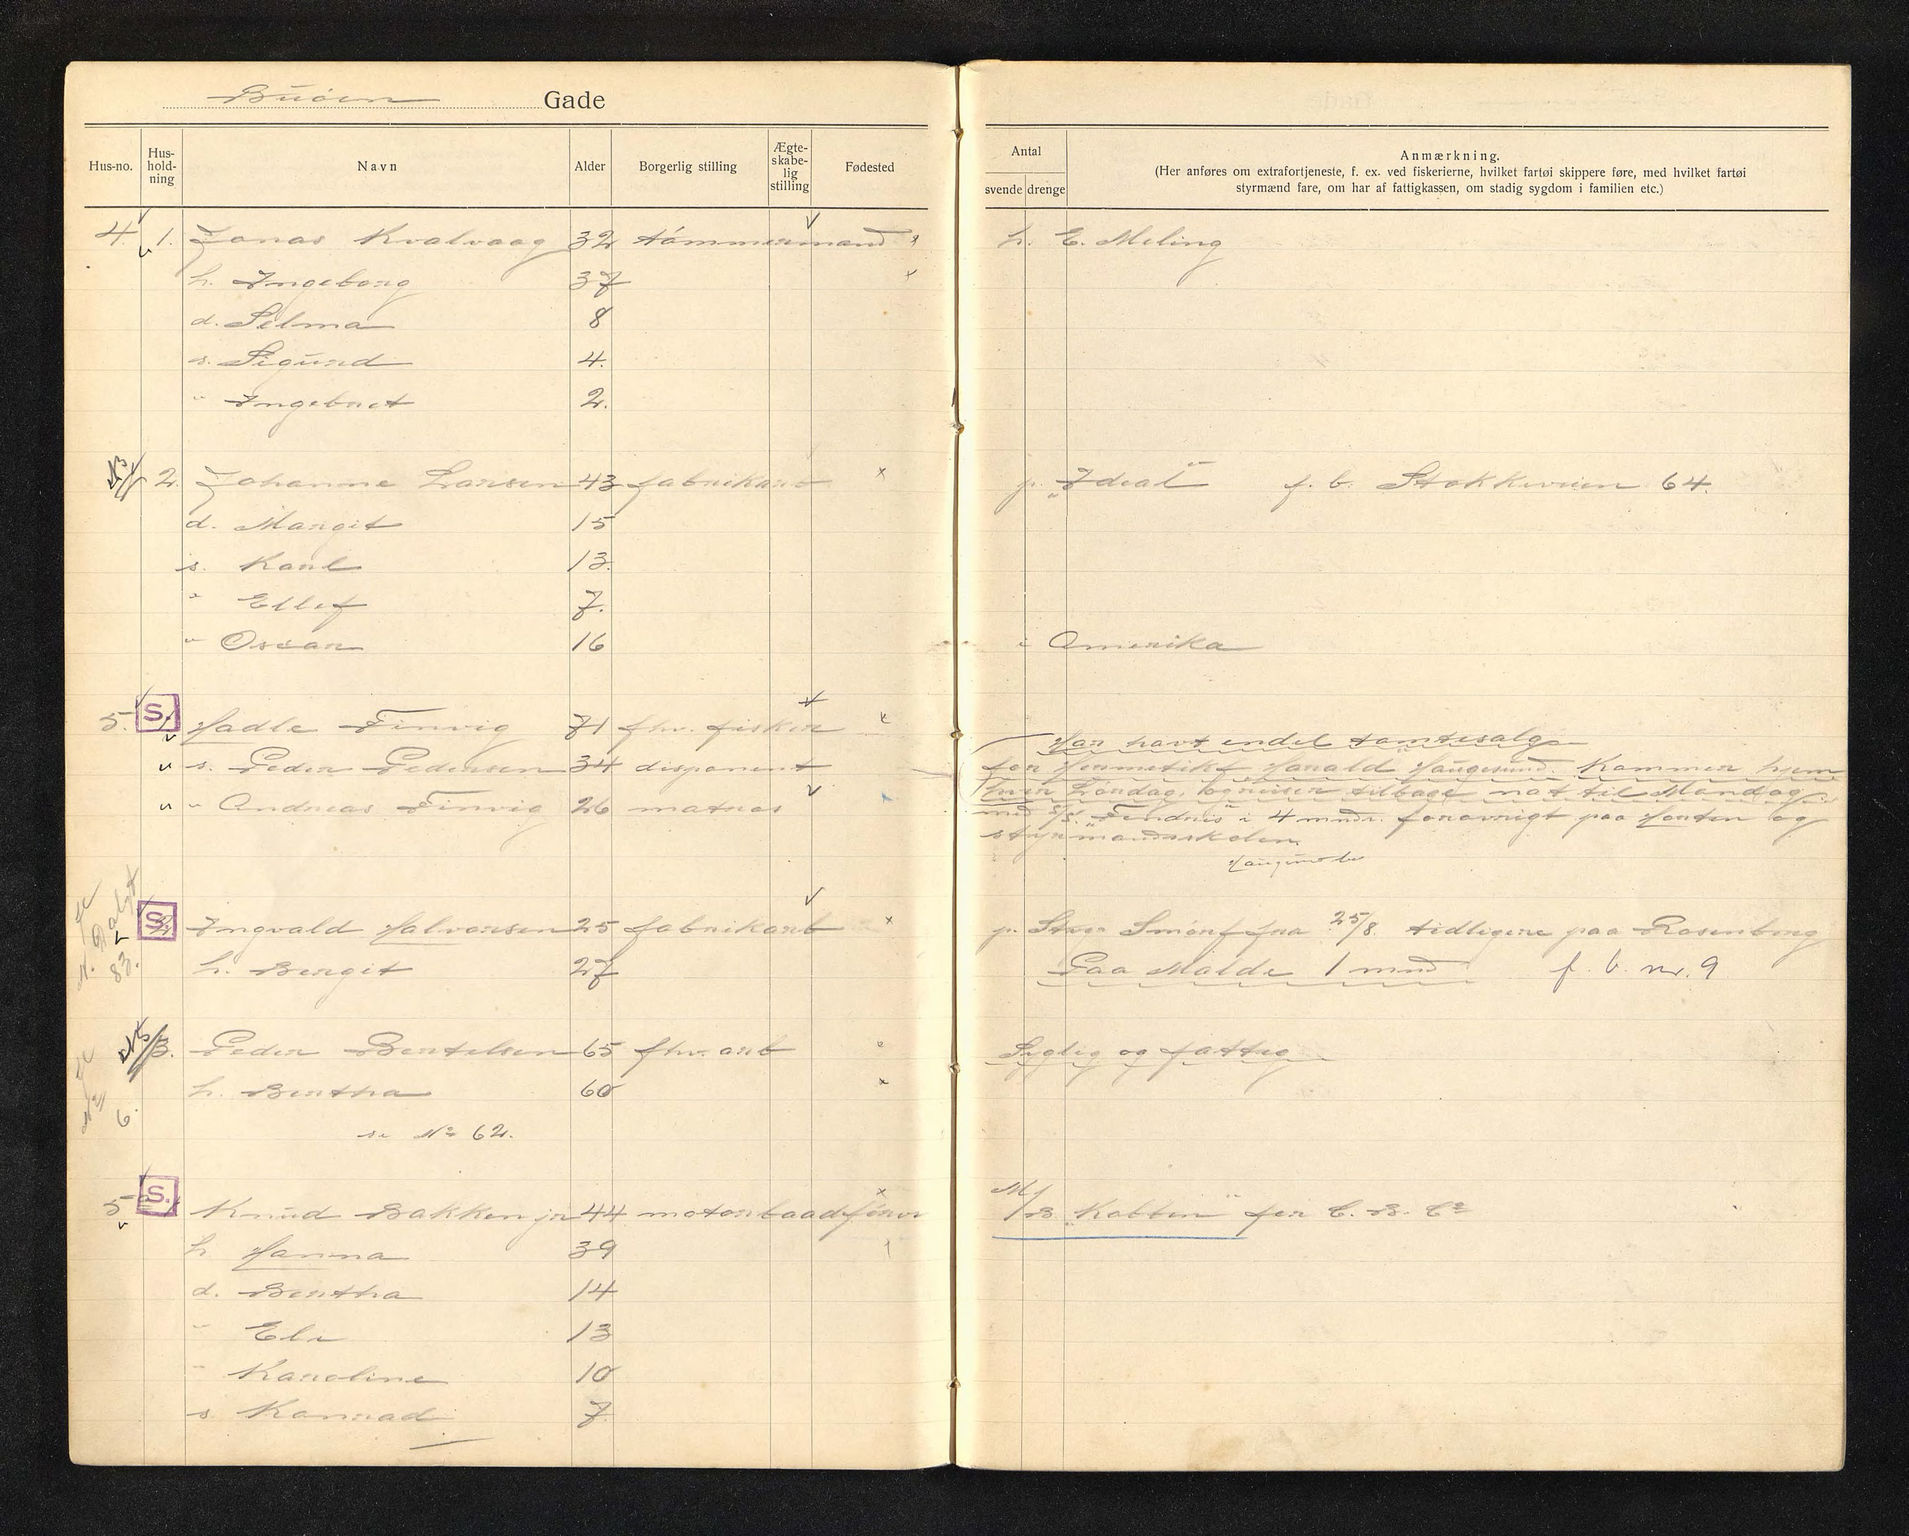 Buöen Gade
Hus-no. Hus-hold-ning Navn Alder Borgerlig stilling Ægte-skabe-lig stilling Fødested
Antal svende drenge
Anmærkning.
(Her anføres om extrafortjeneste, f. ex. ved fiskerierne, hvilket fartøi skippere føre, med hvilket fartøi
styrmænd fare, om har af fattigkassen, om stadig sygdom i familien etc.)
4. 1. Jonas Kvalvaag 32 tömmermand h. E. Meling
h. Ingeborg 37
d. Selma 8
s. Sigurd 4.
" Ingebret 2.
2. Johanne Larsen 43 fabrikarb p. "Ideal" f. b. Stokkeveien 64.
d. Margit 15
s. Karl 13.
" Ellef 7.
" Oscar 16 i Amerika
5. S. 1 Hadle Finvig 71 fhv. fisker
Har havt endel tomtesalg
s. Peder Pedersen 34 disponent for Hermetikf Harald Haugesund. Kommer hjem
hver Lördag, og reiser tilbage nat til Mandag.
" Andreas Finvig 26 matros med S/S. "Fendris" i 4 mndr. forövrigt paa Horten og
styrmandsskolen.
S. 2. Ingvald Halvorsen 25 fabrikarb p. Stav. Smörf fra 25/8. tidligere paa Rosenberg
h. Bergit 27 Paa Malde 1 mnd f. b. nr. 9
83.
3. Peder Bertelsen 65 fhv. arb Syglig og fattig
h. Bertha 60
6.
se No 62.
5 S. Knud Bakken jr 44 motorbaadförer M/B. "Kobbin" for C. B. Co
h Hanna 39
d. Bertha 14
" Eli 13
" Karoline 10
s Konrad 7.